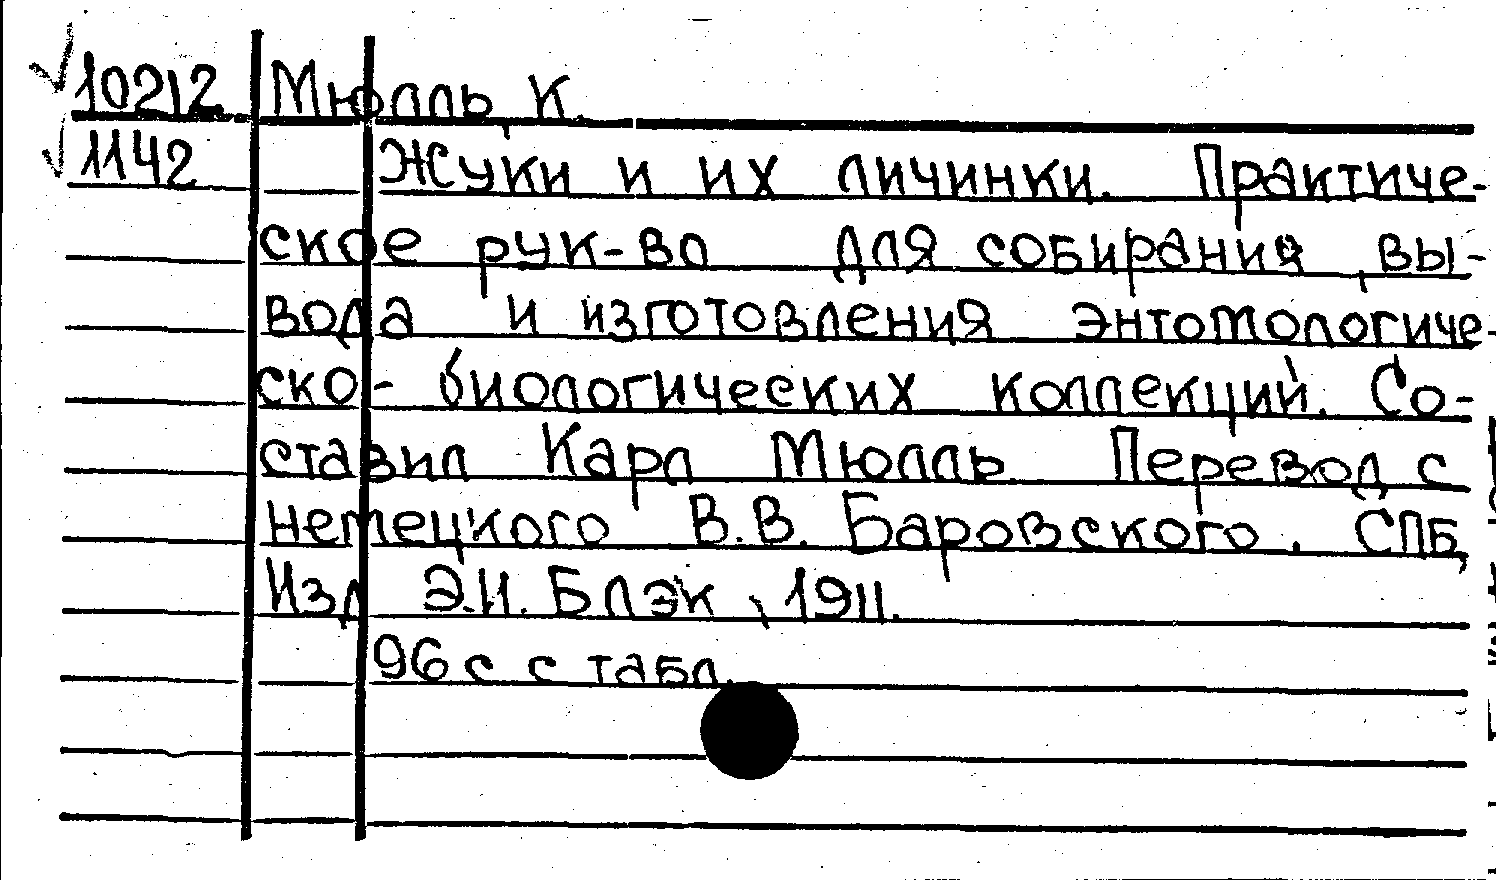 √10212 Мюлль, К.
√1142 Жуки и их личинки. Практиче-
ское рук-во для собирания, вы-
вода и изготовления энтомологиче-
ско-биологических коллекций. Со-
ставил Карл Мюлль. Перевод с
немецкого В.В. Баровского. СПБ,
Изд Э.И. Блэк, 1911.
96 с с табл.